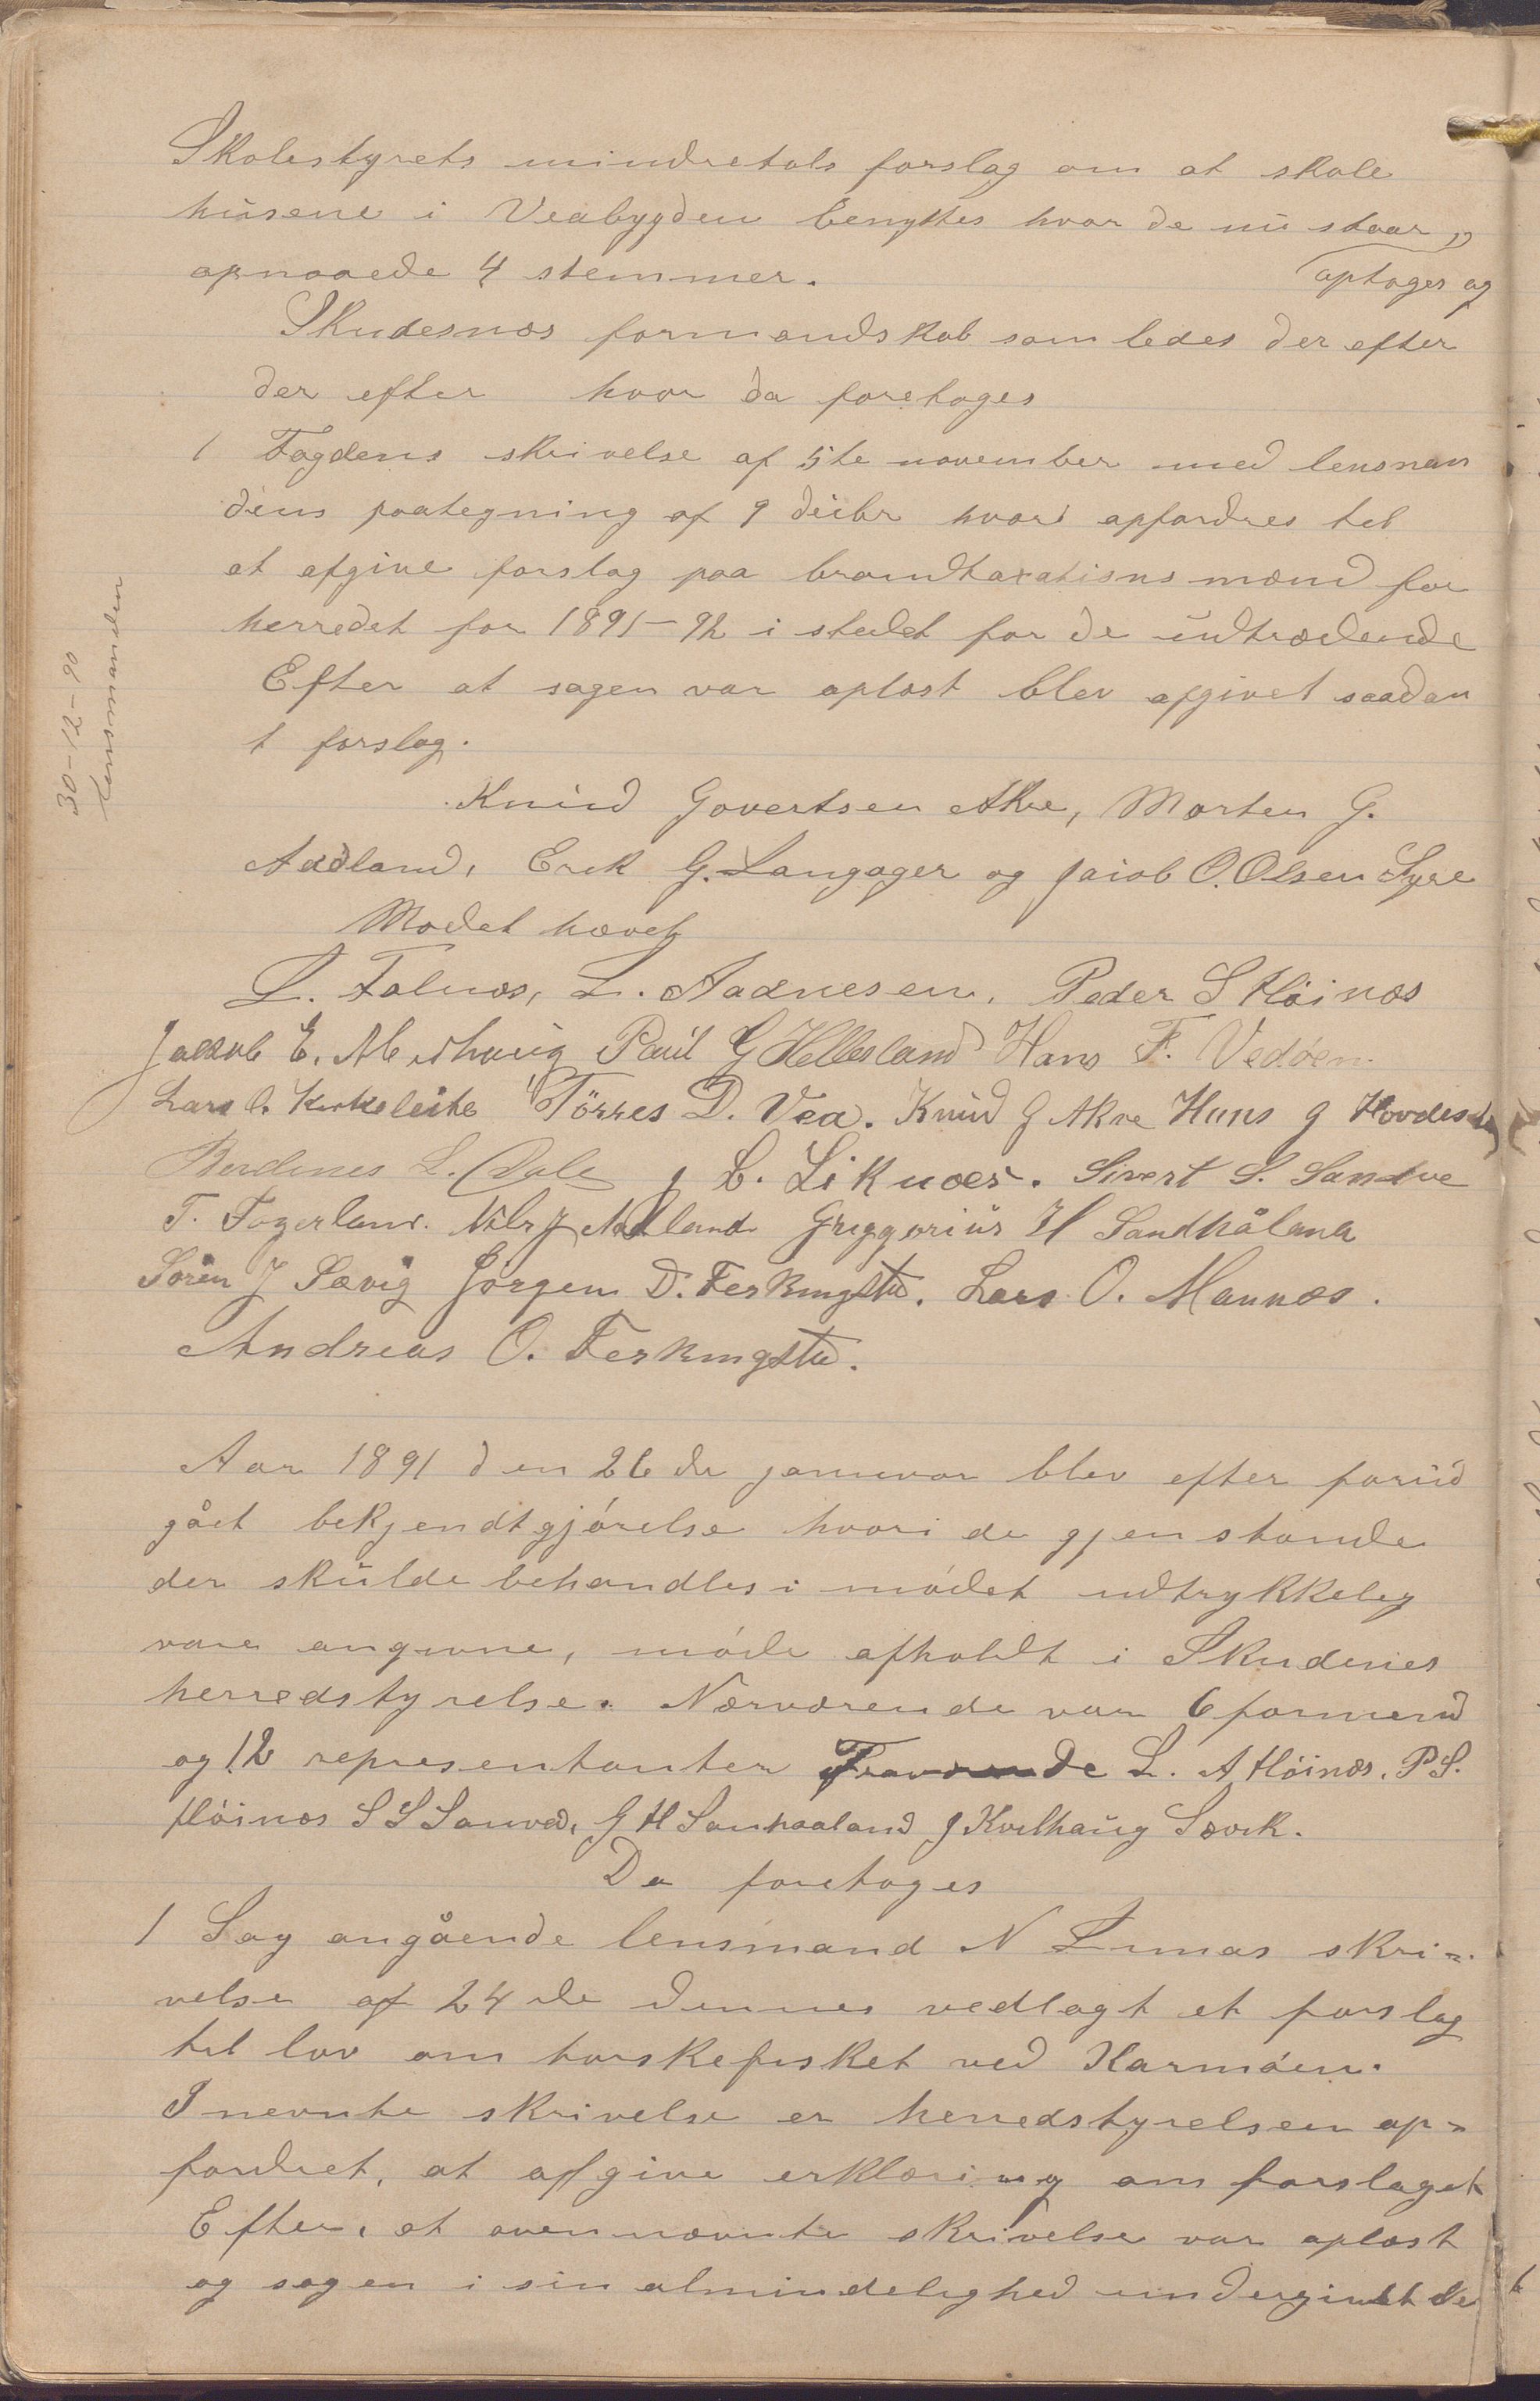 Skolestyrets mindretals forslag om at skole
husene i Veabygden benyttes hvor de nu staar,
optages og
opnaaede 4 stemmer.
Skudesnæs formandskab samledes der efter
der efter hvor da foretoges
1 Fogdens skrivelse af 5te november med lensman
dens paategning af 9 decbr hvori opfordres til
at afgive forslag paa brandtaxationsmænd for
herredet for 1891-92 i stedet for de udtrædende
Efter at sagen var oplæst blev afgivet saadan
t forslag.
30-12-90
Lensmanden
Knud Govertsen Akre, Morten G.
Aadland, Erik G. Langager og Jacob O. Olsen Syre
Mødet hævet
L. Falnæs, L. Aadnesen, Peder S Høinæs
Jakob E. Midhaug Paul G Hellesland Hans F. Vedøen
Lars C. Kirkeleite Törres D. Vea. Knud G Akre Hans G Hovdest
Berdines L. Dale J L. Liknæs. Sivert S. Sandve
T. Fagerland. Nils J Aadland Greggorius H Sandhåland
Søren J Sævig Jørgen D. Ferkingstd. Lars O. Mannæs.
Andreas O. Ferkingstd.
Aar 1891 den 26de januvar blev efter forud
gået bekjendtgjørelse hvori de gjenstande
der skulde behandles i mødet udtrykkelig
vare angivne, møde afholdt i Skudenes
herredstyrelse. Nærværende var 6 formend
og 12 representanter Fraværende L. A Høinæs, P S.
Høinæs S S Sanved, G H Sanhaaland J Kvilhaug Sævik.
Da foretoges
1 Sag angående lensmand N Lunas skri-
velse af 24de dennes vedlagt et forslag
til lov om torskefisket ved Karmøen.
I nevnte skrivelse er herredstyrelsen op-
fordret, at afgive erklæring om forslaget
Efter, at ovennævnte skrivelse var oplæst
og sagen i sin almindelighed undergivet de